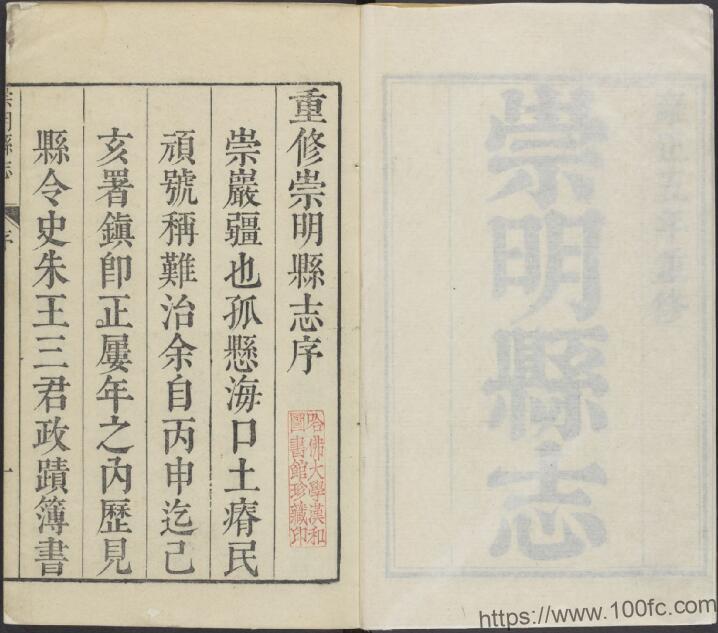 崇明縣志
重修崇明縣志序
崇巖疆也孤懸海口土瘠民
頑號稱難治余自丙申迄己
亥署鎮卽正屢年之內歷見
縣令史朱王三君政蹟簿書
崇明縣志
序
一
哈佛大學漢和
圖書館珍藏印
https://www.100fc.com